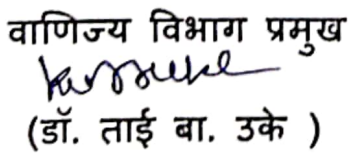 वाणिज्य विभाग प्रमुख
(डॉ. ताई बा. उके )